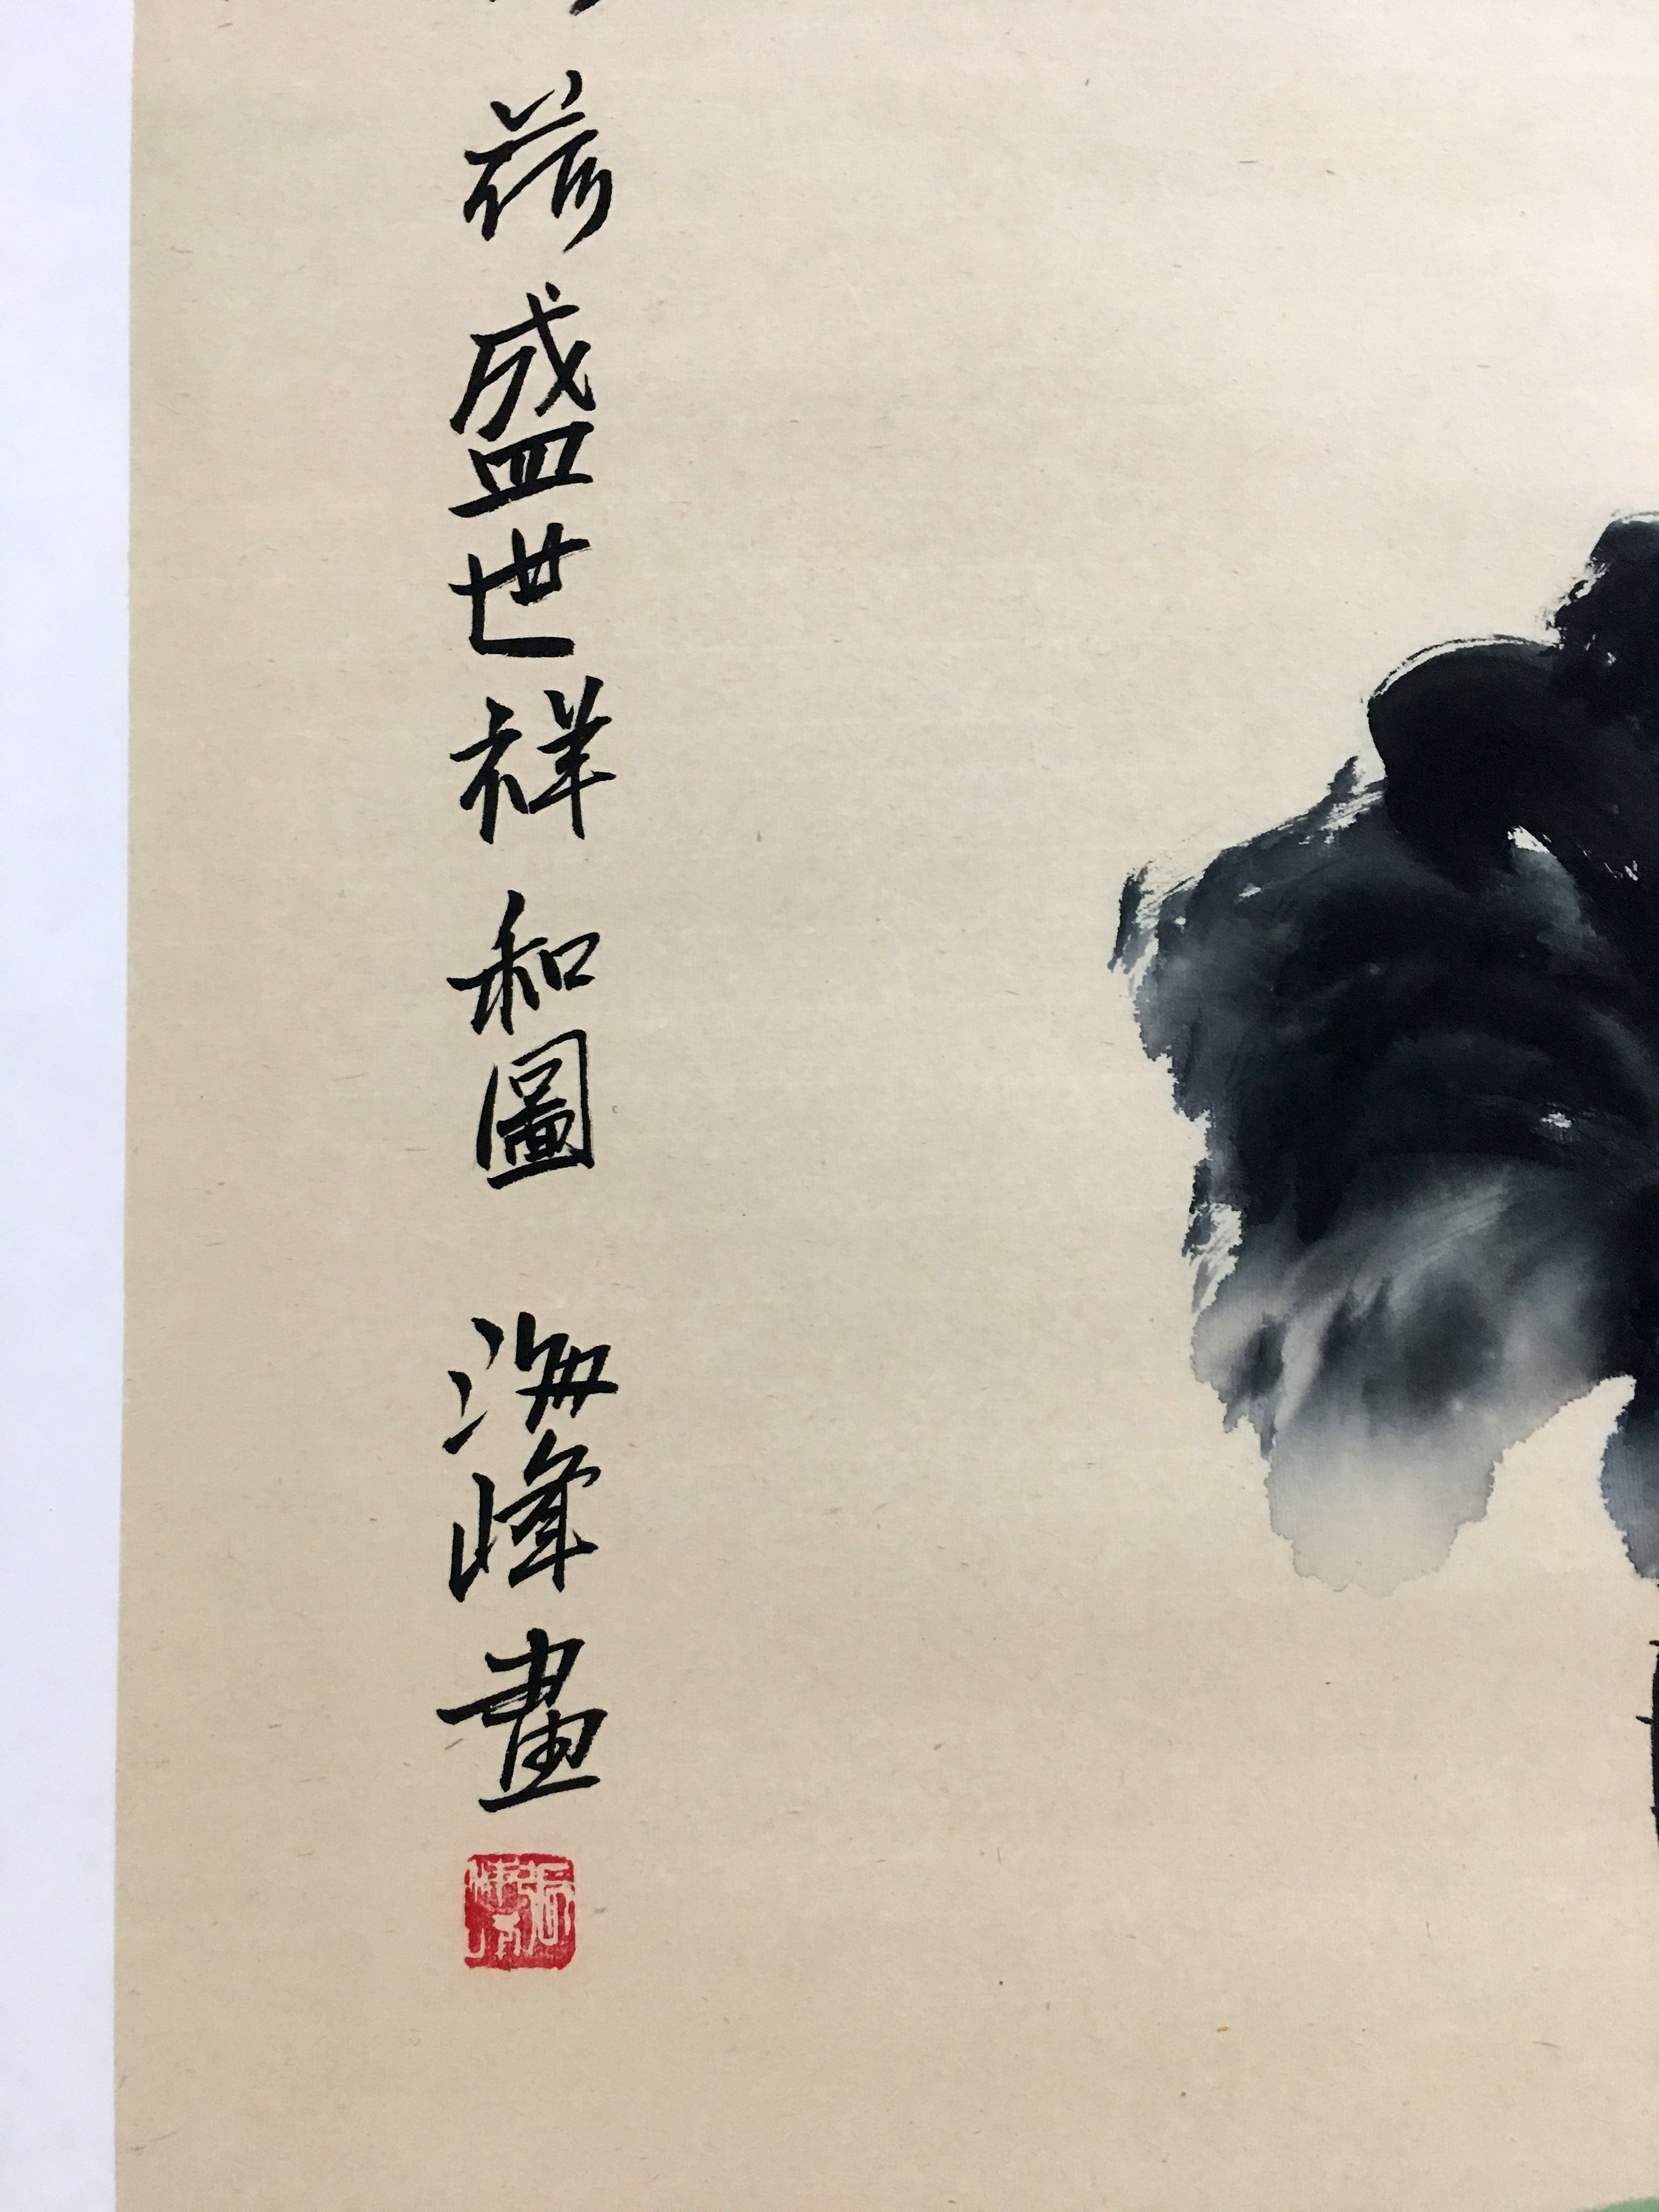 荷盛世祥和圖 海峰畫